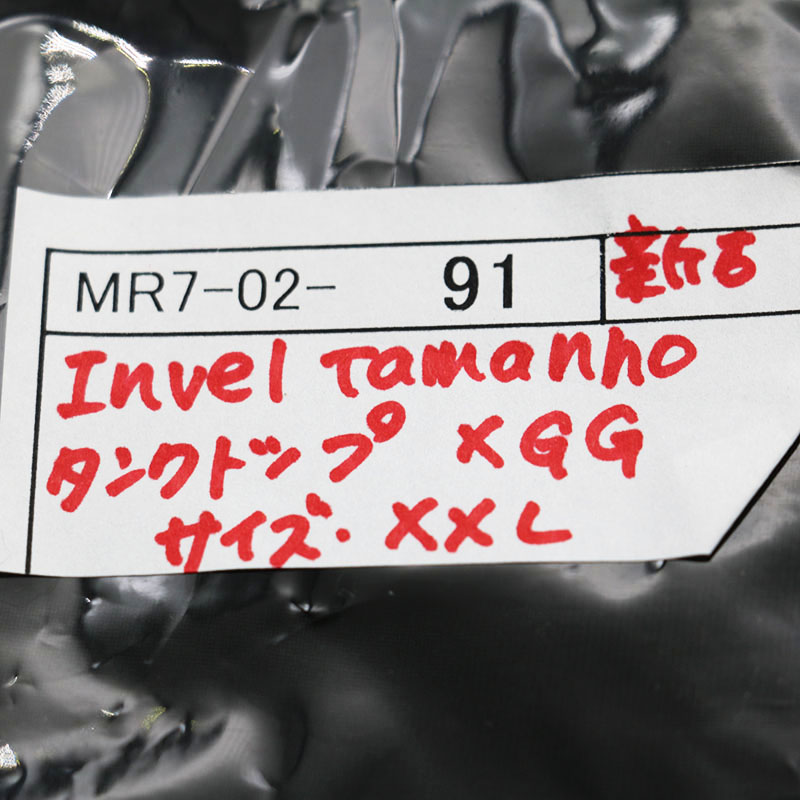 MR7-02- 91
Invel Tamanho
タンクトップ XGG
サイズ. XXL